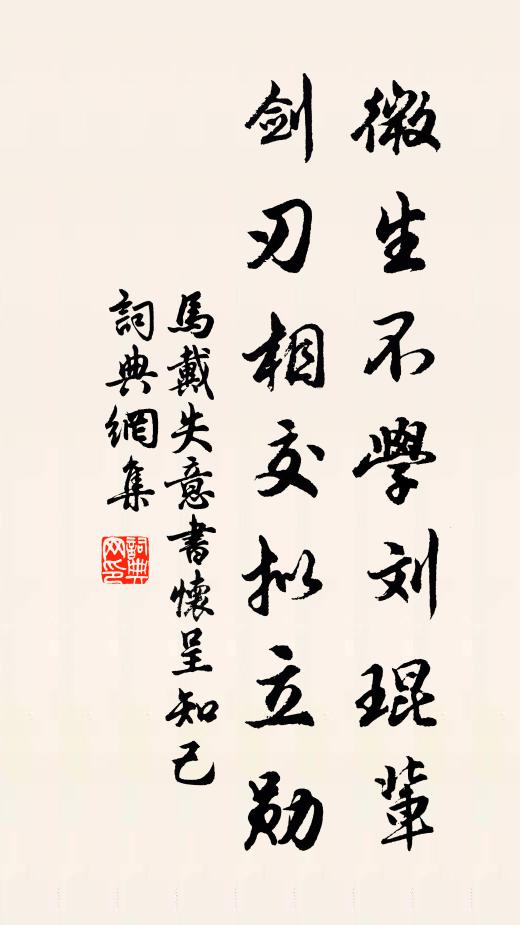 微生不學刘琨輩
劍刃相交拟立勛
馬戴失意書懷呈知己
詞典網集
詞典网印